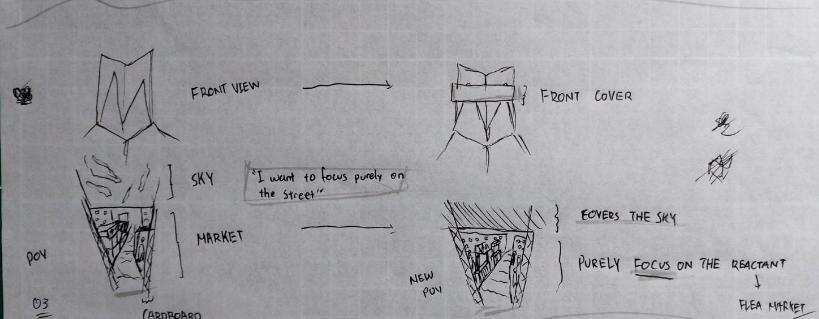 FRONT VIEW
FRONT COVER
SKY
"I want to focus purely on
the street"
COVERS THE SKY
MARKET
POV
NEW
POV
PURELY FOCUS ON THE REACTANT
FLEA MARKET
03
CARDBOARD